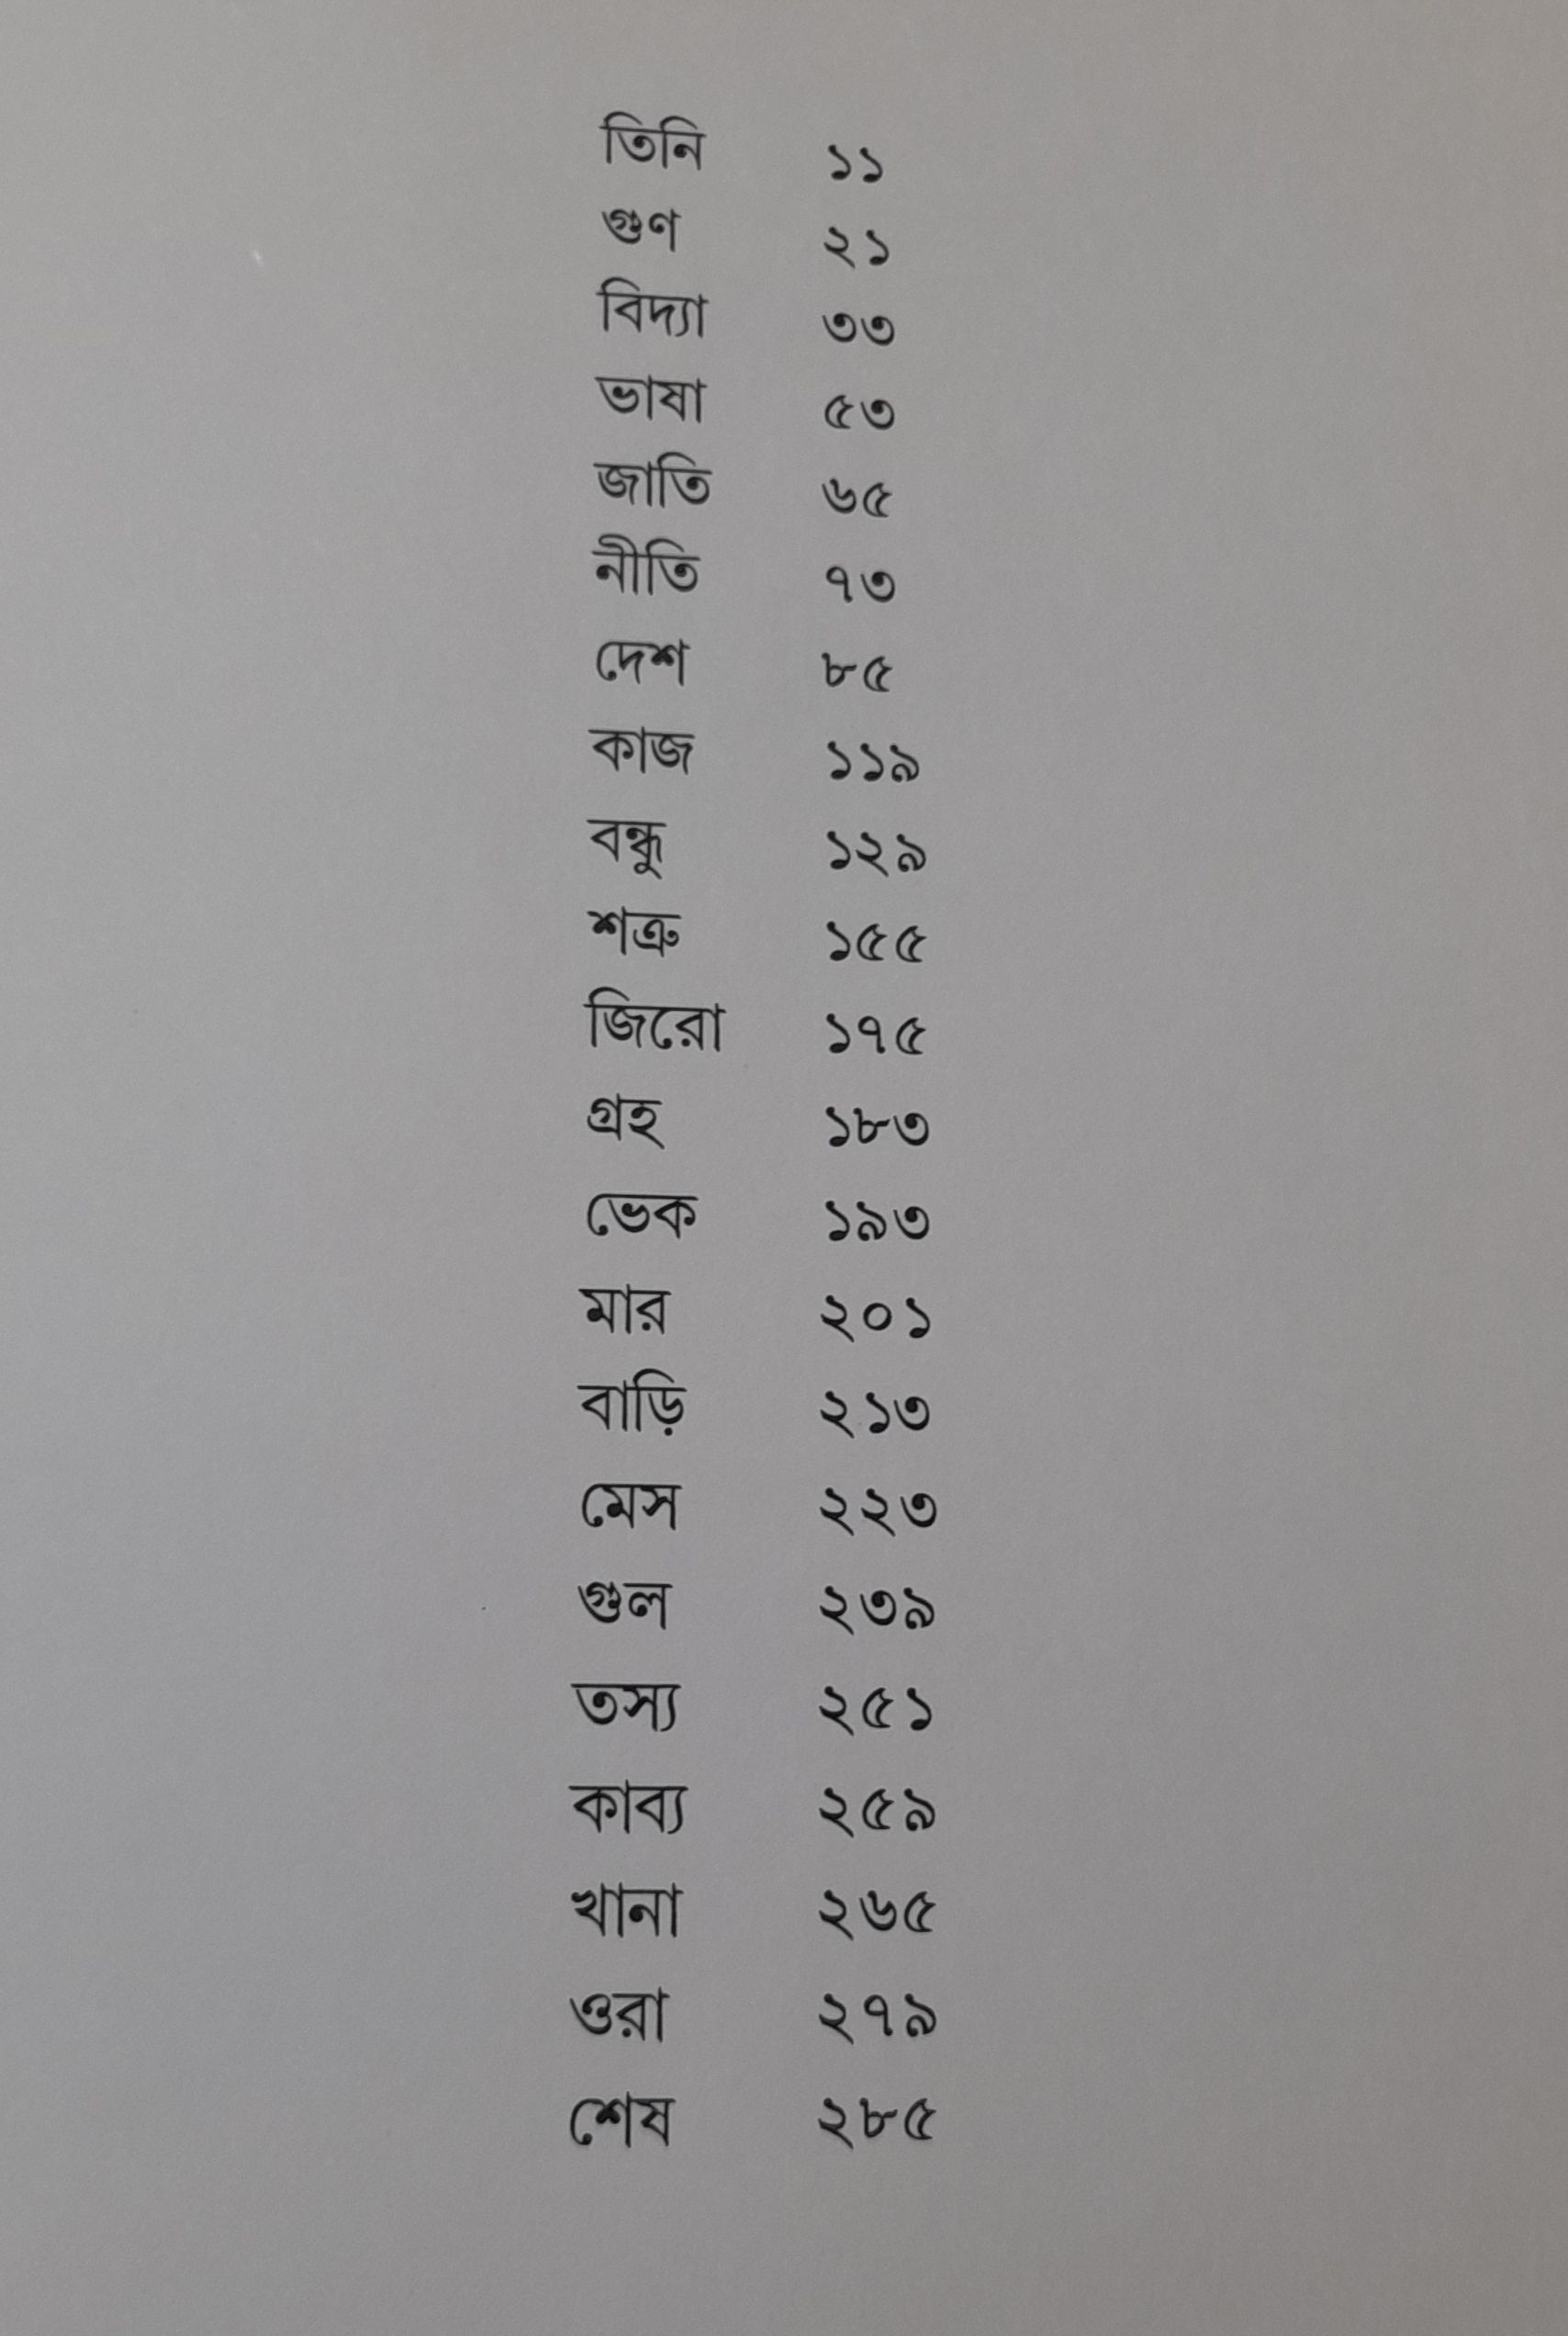 তিনি ১১
গুণ ২১
বিদ্যা ৩৩
ভাষা ৫৩
জাতি ৬৫
নীতি ৭৩
দেশ ৮৫
কাজ ১১৯
বন্ধু ১২৯
শত্রু ১৫৫
জিরো ১৭৫
গ্রহ ১৮৩
ভেক ১৯৩
মার ২০১
বাড়ি ২১৩
মেস ২২৩
গুল ২৩৯
তস্য ২৫১
কাব্য ২৫৯
খানা ২৬৫
ওরা ২৭৯
শেষ ২৮৫